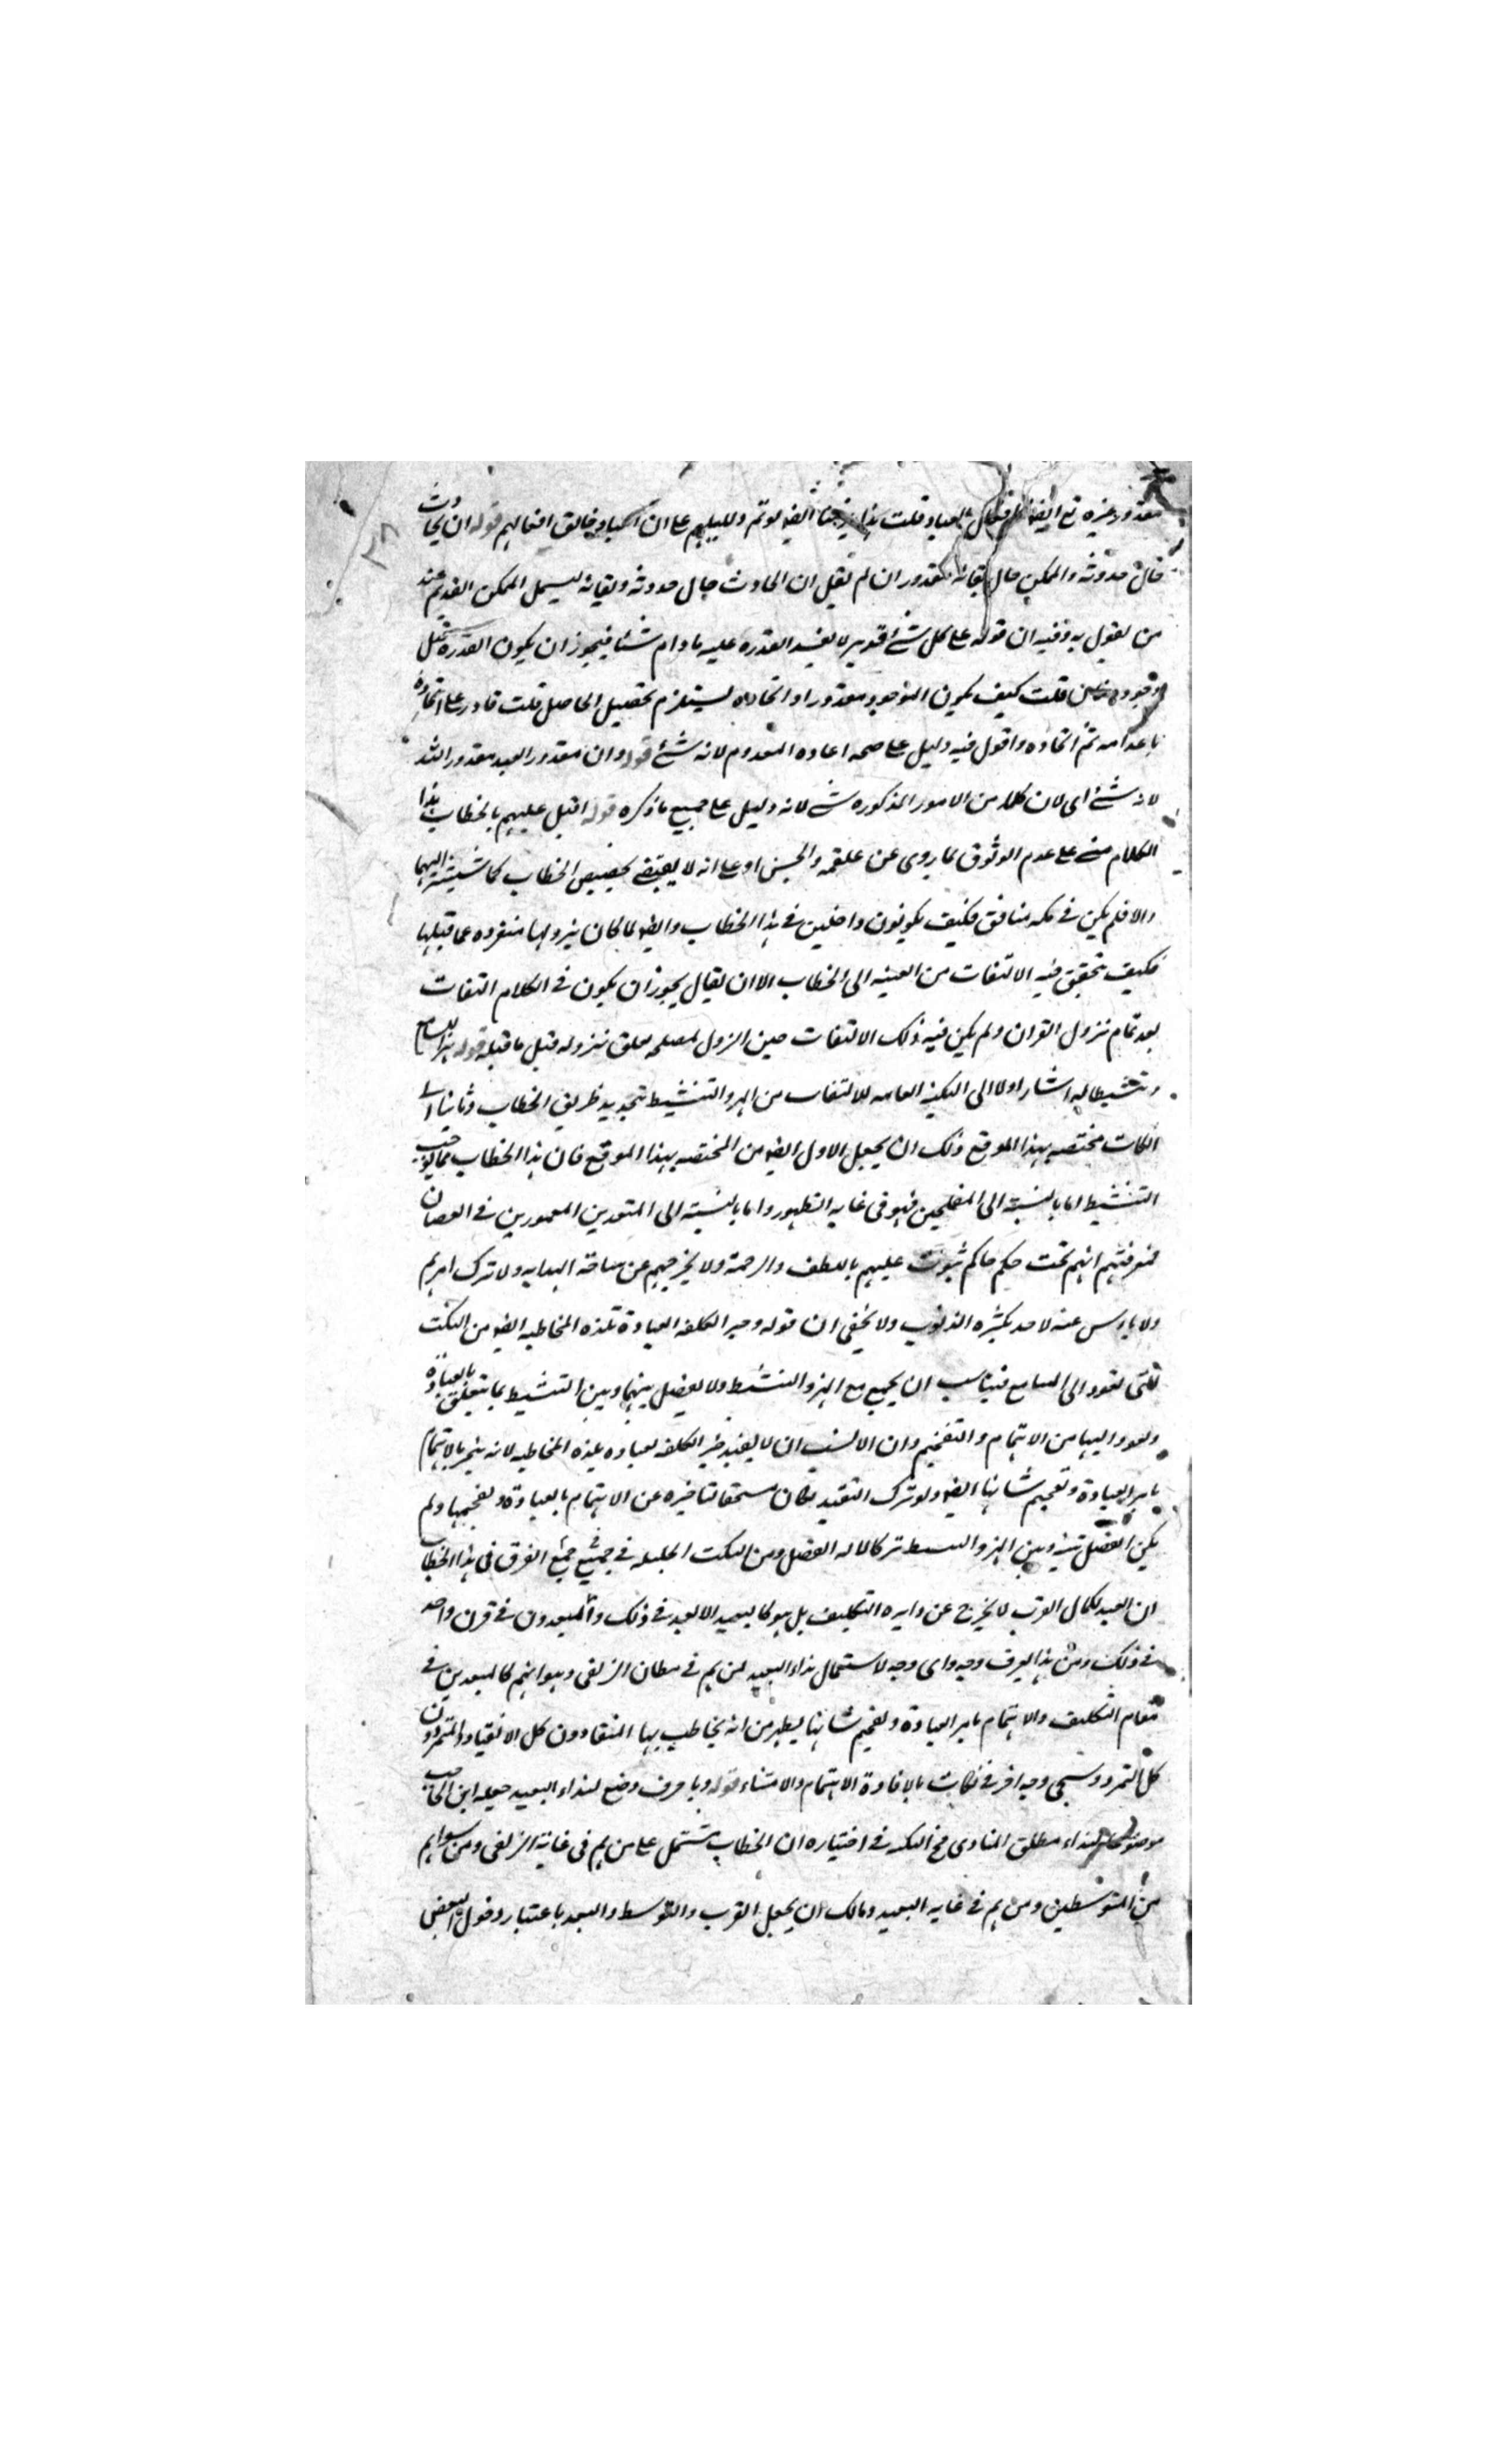 مقدور غيره تع ايضا كافعال العباد قلت ايضا لو تم دليلهم على ان العباد خالق افعالهم قوله ان الحادث
حال حدوثه والممكن حال بقائه مقدوران لم نقل ان الحادث حال حدوثه وبقائه ليشمل الممكن القديم عند
من يقول به وفيه ان قوله على كل شئ قدير لا يفيد القدرة عليه ما دام شئا فيجوز ان يكون القدرة قبل
وجوده فان قلت كيف يكون الموجود مقدورا وايجاده يستلزم تحصيل الحاصل قلت قادر على ايجاده
باعدامه ثم ايجاده واقول فيه دليل على صحه اعاده المعدوم لانه شئ قوله وان مقدور العبد مقدور الله
لانه شئ اى لان كلا من الامور المذكوره شئ لانه دليل على جميع ما ذكره قوله اقبل عليهم بالخطاب هذا
الكلام مبنى على عدم الوثوق بما روى عن علقمه والحسن او على انه لا يقتضى تخصيص الخطاب كما اليهما
والا فلم يكن فى مكه منافق فكيف يكونون داخلين فى هذا الخطاب وايضا لما كان نزولها منفرده عما قبلها
فكيف تحقق فيه الالتفات من الغيبه الى الخطاب الا ان يقال يجوز ان يكون فى الكلام التفات
بعد تمام نزول القران ولم يكن فيه ذلك الالتفات حين النزول لمصلحه تعلق نزوله قبل ما قبله قوله هزا للسامع
وتنشيطا له اشار اولا الى النكته العامه للالتفات من الهز والتنشيط بتجديد طريق الخطاب وثانيا الى
النكات مختصه بهذا الموقع ولك ان يجعل الاول ايضا من المختصه بهذا الموقع فان هذا الخطاب مما يوجب
التنشيط اما بالنسبة الى المفلحين فهو فى غايه الظهور واما بالنسبة الى المتمردين المغمورين فى العصيان
فمعرفتهم انهم تحت حكم حاكم عليهم باللطف والرحمة ولا يخرجهم عن ساحة الهدايه ولا ترك امرهم
ولا ياس عنه لاحد بكثره الذنوب ولا يخفى ان قوله وجبر الكلفه العبادة بلذه المخاطبه ايضا من النكت
التى تعود الى السامع فيناسب ان يجمع مع الهز والتنشيط ولا يفصل بينهما وبين التنشيط بما يتعلق بالعبادة
ويعود اليها من الاهتمام والتفخيم وان الانسب ان لا يقيد جبر الكلفه لعباده بلذه المخاطبه لانه ينجبر بالاهتمام
بامر العبادة وتفخيم شانها ايضا ولو ترك التقيد لكان مستحقا لتاخيره عن الاهتمام بالعبادة وتفخيمها ولم
يكن الفصل بينه وبين الهز والتنشيط تركا لما له الفضل ومن النكت الجليله فى جميع الفرق فى هذا الخطاب
ان العبد لكمال القرب لا يخرج عن دايره التكليف بل هو كالبعيد الابعد فى ذلك والمبعدون فى قرن واحد
فى ذلك ومن هذا يعرف وجه واى وجه لاستعمال نداء البعيد لمن هم فى مظان الزلفى وهو انهم كالمبعدين فى
مقام التكليف والاهتمام بامر العبادة وتفخيم شانها يظهر من انه يخاطب بها المنقادون كل الانقياد والمتمردون
كل التمرد وسيجى وجه اخر فى نكات يا لافادة الاهتمام والاعتناء قوله ويا حرف وضع لنداء البعيد جعله ابن الحاجب
موضوعا لنداء مطلق المنادى فح النكته فى اختياره ان الخطاب يشتمل على من هم فى غاية الزلفى ومن سواهم
من المتوسطين ومن هم فى غايه البعد ولك ان يجعل القرب والتوسط والبعد باعتبار دخول البعض